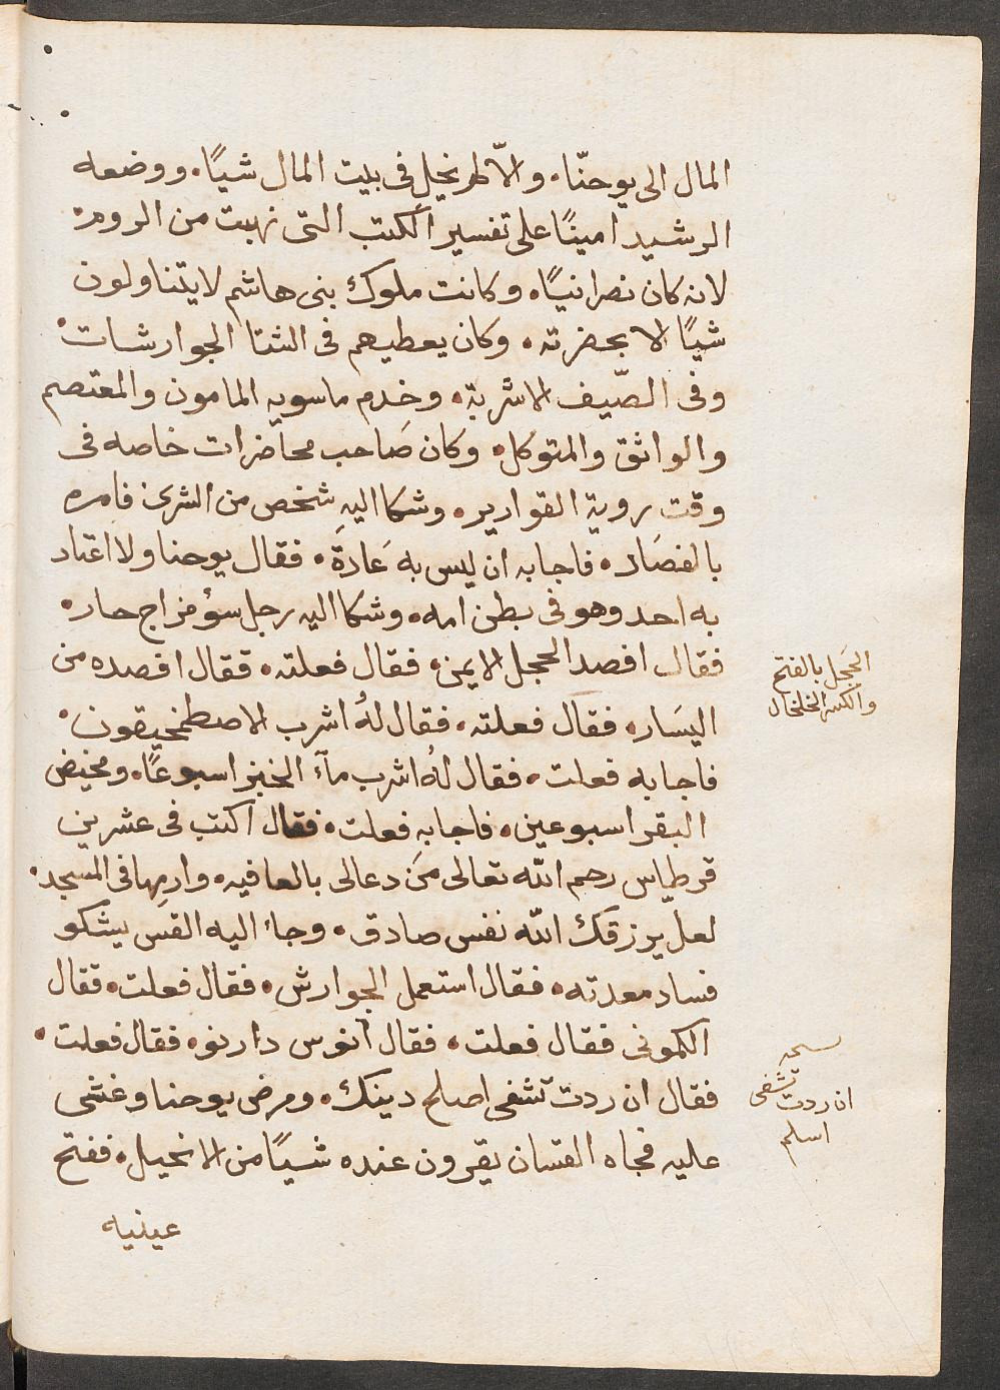 المال الى يوحنّا. والّا لم نخيل فى بيت المال شيًا. ووضعه
الرشيد امينًا على تفسير الكتب التى نهبت من الروم.
لانه كان نصرانيًا. وكانت ملوك بنى هاشم لا يتناولون
شيًا الا بحضرته. وكان يعطيهم فى الشتا الجوارشات.
وفى الصّيف الاشربة. وخدم ماسويه المامون والمعتصم
والواثق والمتوكل. وكان صَاحب محاضرات خاصه فى
وقت روية القوارير. وشكا اليهِ شخص من الشرى فامره
بالفصَاد. فاجابه ان ليس به عَادة. فقال يوحنا ولا اعتاد
به احد وهو فى بطن امه. وشكا اليه رجل سؤ مزاج حار.
فقال افصد الحجل الايمن. فقال فعلته. فقال افصده من
اليسَار. فقال فعلته. فقال لهُ اشرب الاصطمخيقون.
فاجابه فعلت. فقال لهُ اشرب مآء الخبز اسبوعًا. ومخيض
البقر اسبوعين. فاجابه فعلت. فقال اكتب فى عشرين
قرطاس رحم الله تعالى مَن دعالى بالعافيه. وارمِها فى المسجد.
لعل يرزقك الله نفس صادق. وجاء اليه القس يشكو
فساد معدته. فقال استعمل الجوارش. فقال فعلت. فقال
الكمونى فقال فعلت. فقال انوس دارنو. فقال فعلت.
فقال ان ردت تشفى اصلح دينك. ومرض يوحنا وغشى
عليه فجاه القسان يقرون عنده شيًا من الانجيل. ففتح
عينيه
الحَجل بالفتح
والكسر الخلخال
نسخه
ان ردت تشفى
اسلم